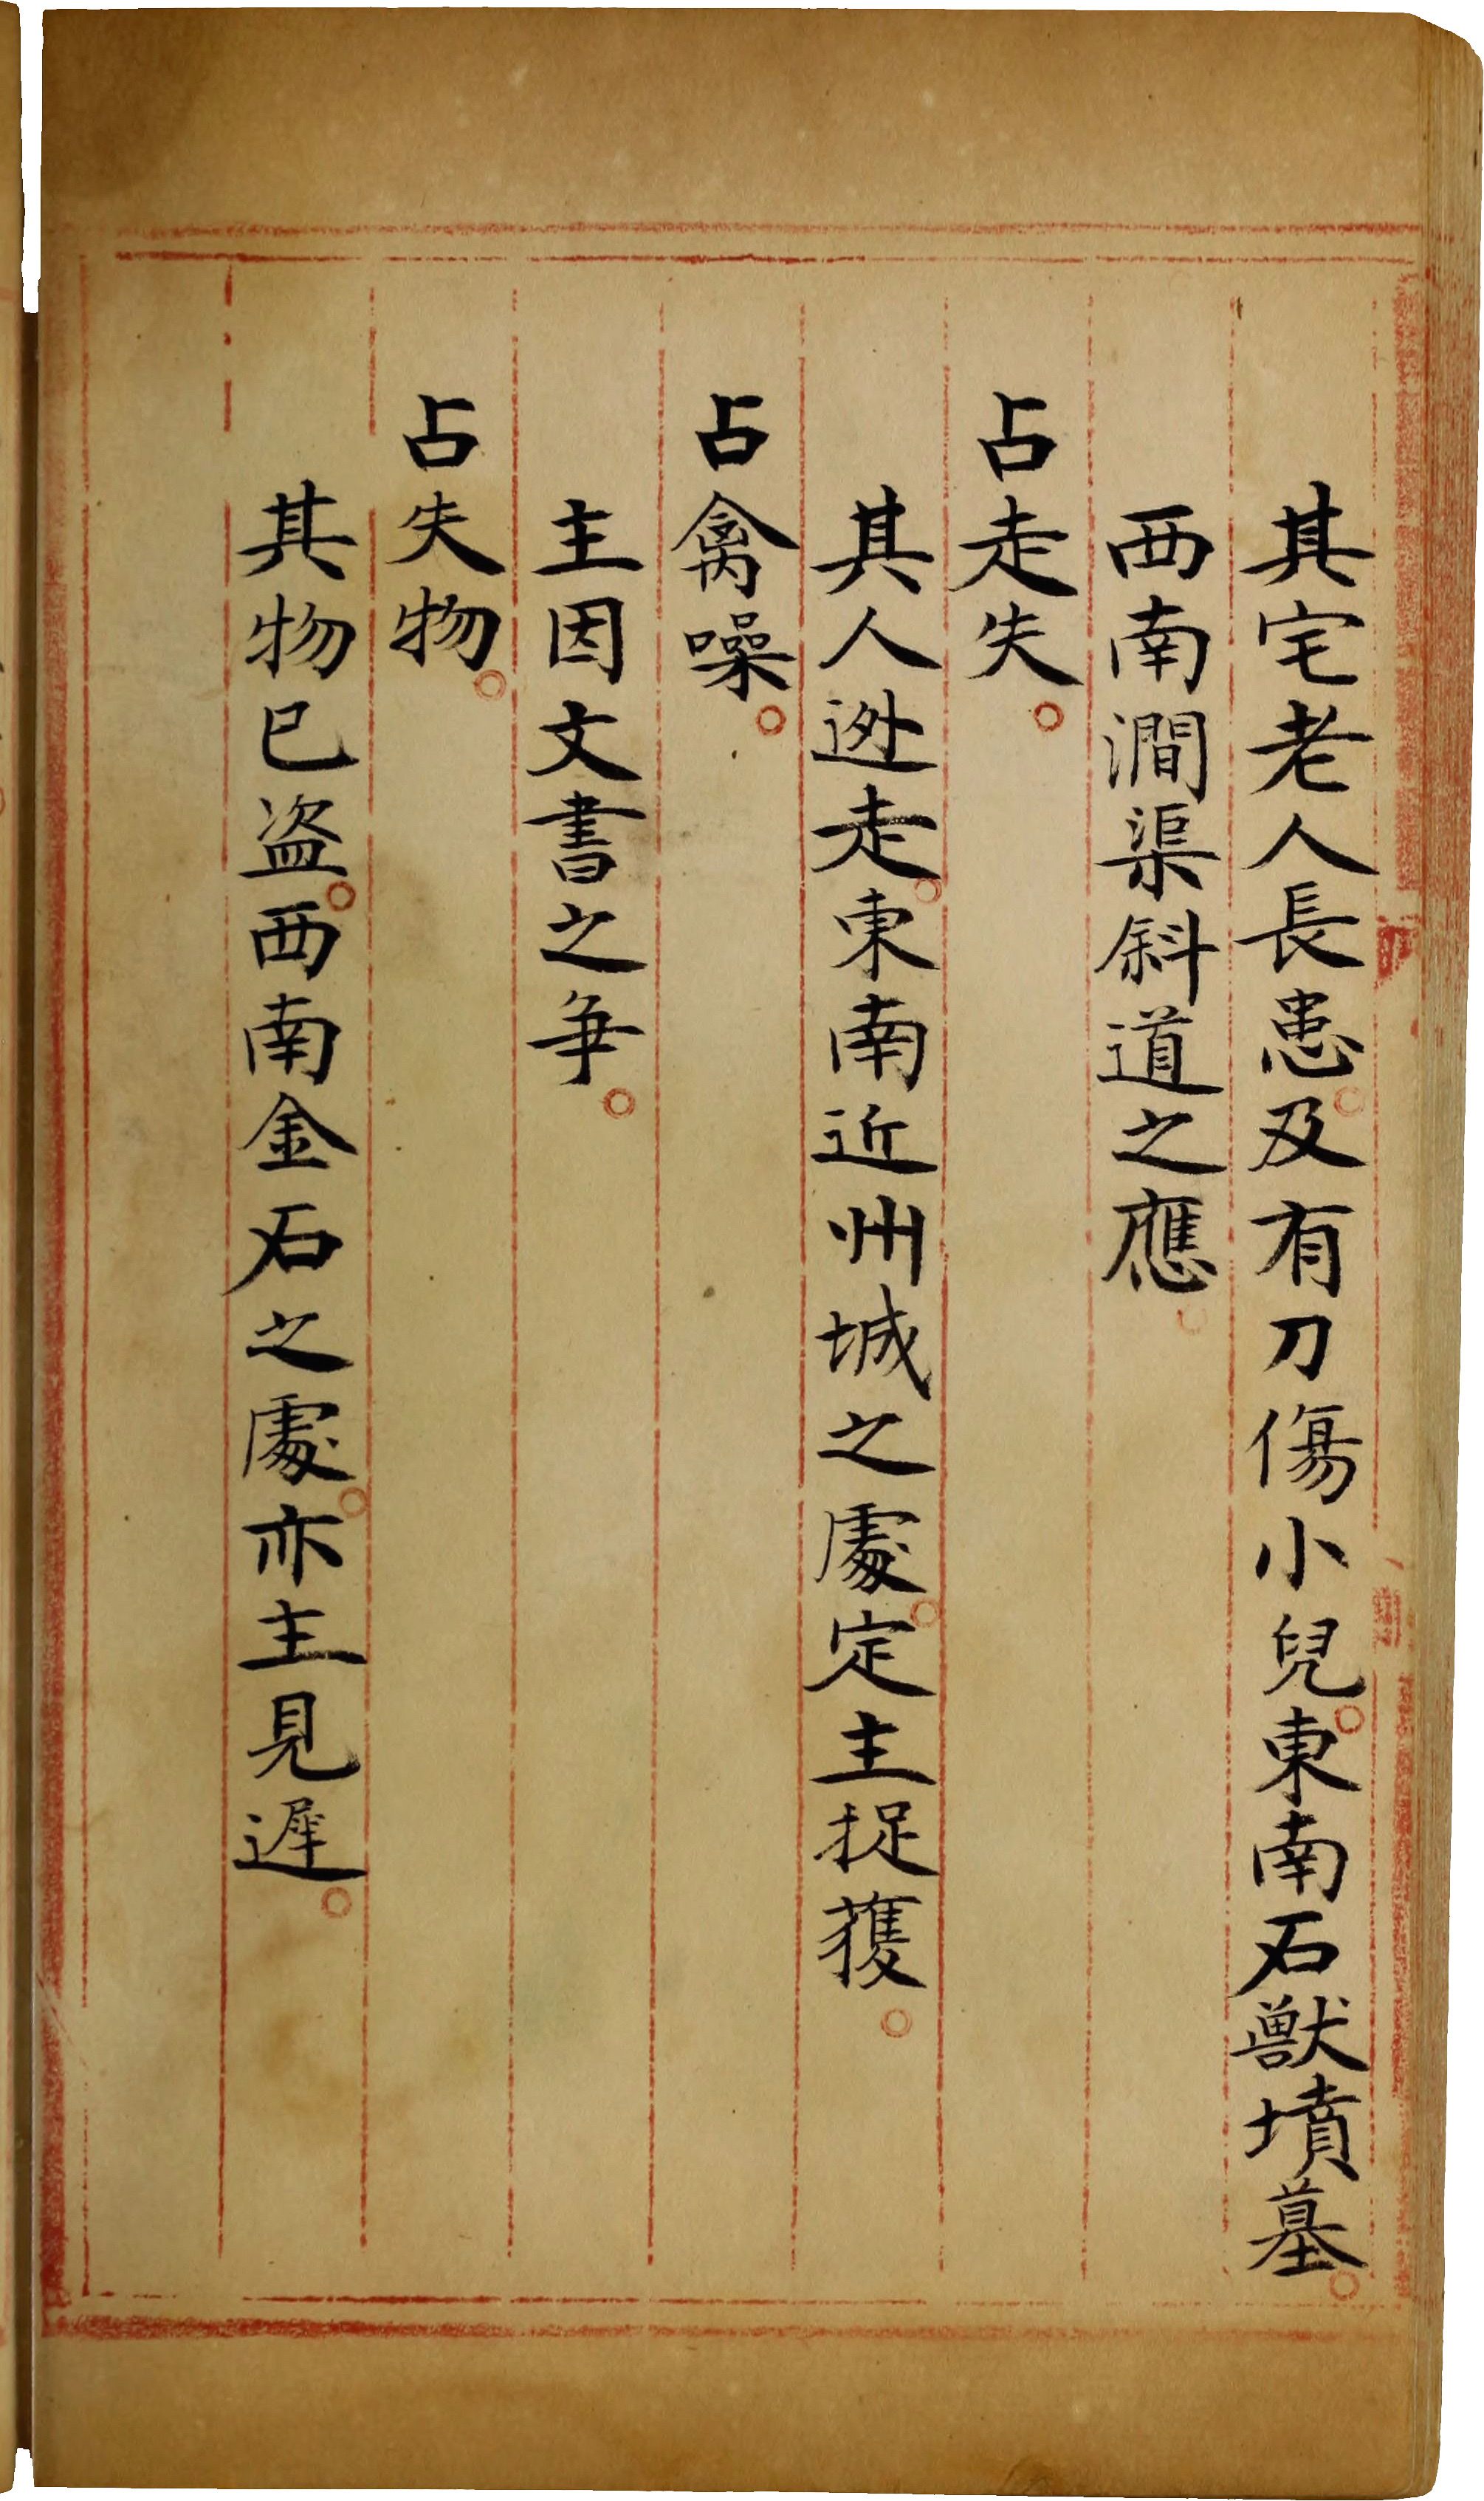 其宅老人長患。及有刀傷小兒。東南石獸墳墓。
西南澗渠斜道之應。
占走失。
其人逃走。東南近州城之處。定主捉獲。
占禽噪。
主因文書之爭。
占失物。
其物已盜。西南金石之處。亦主見遲。